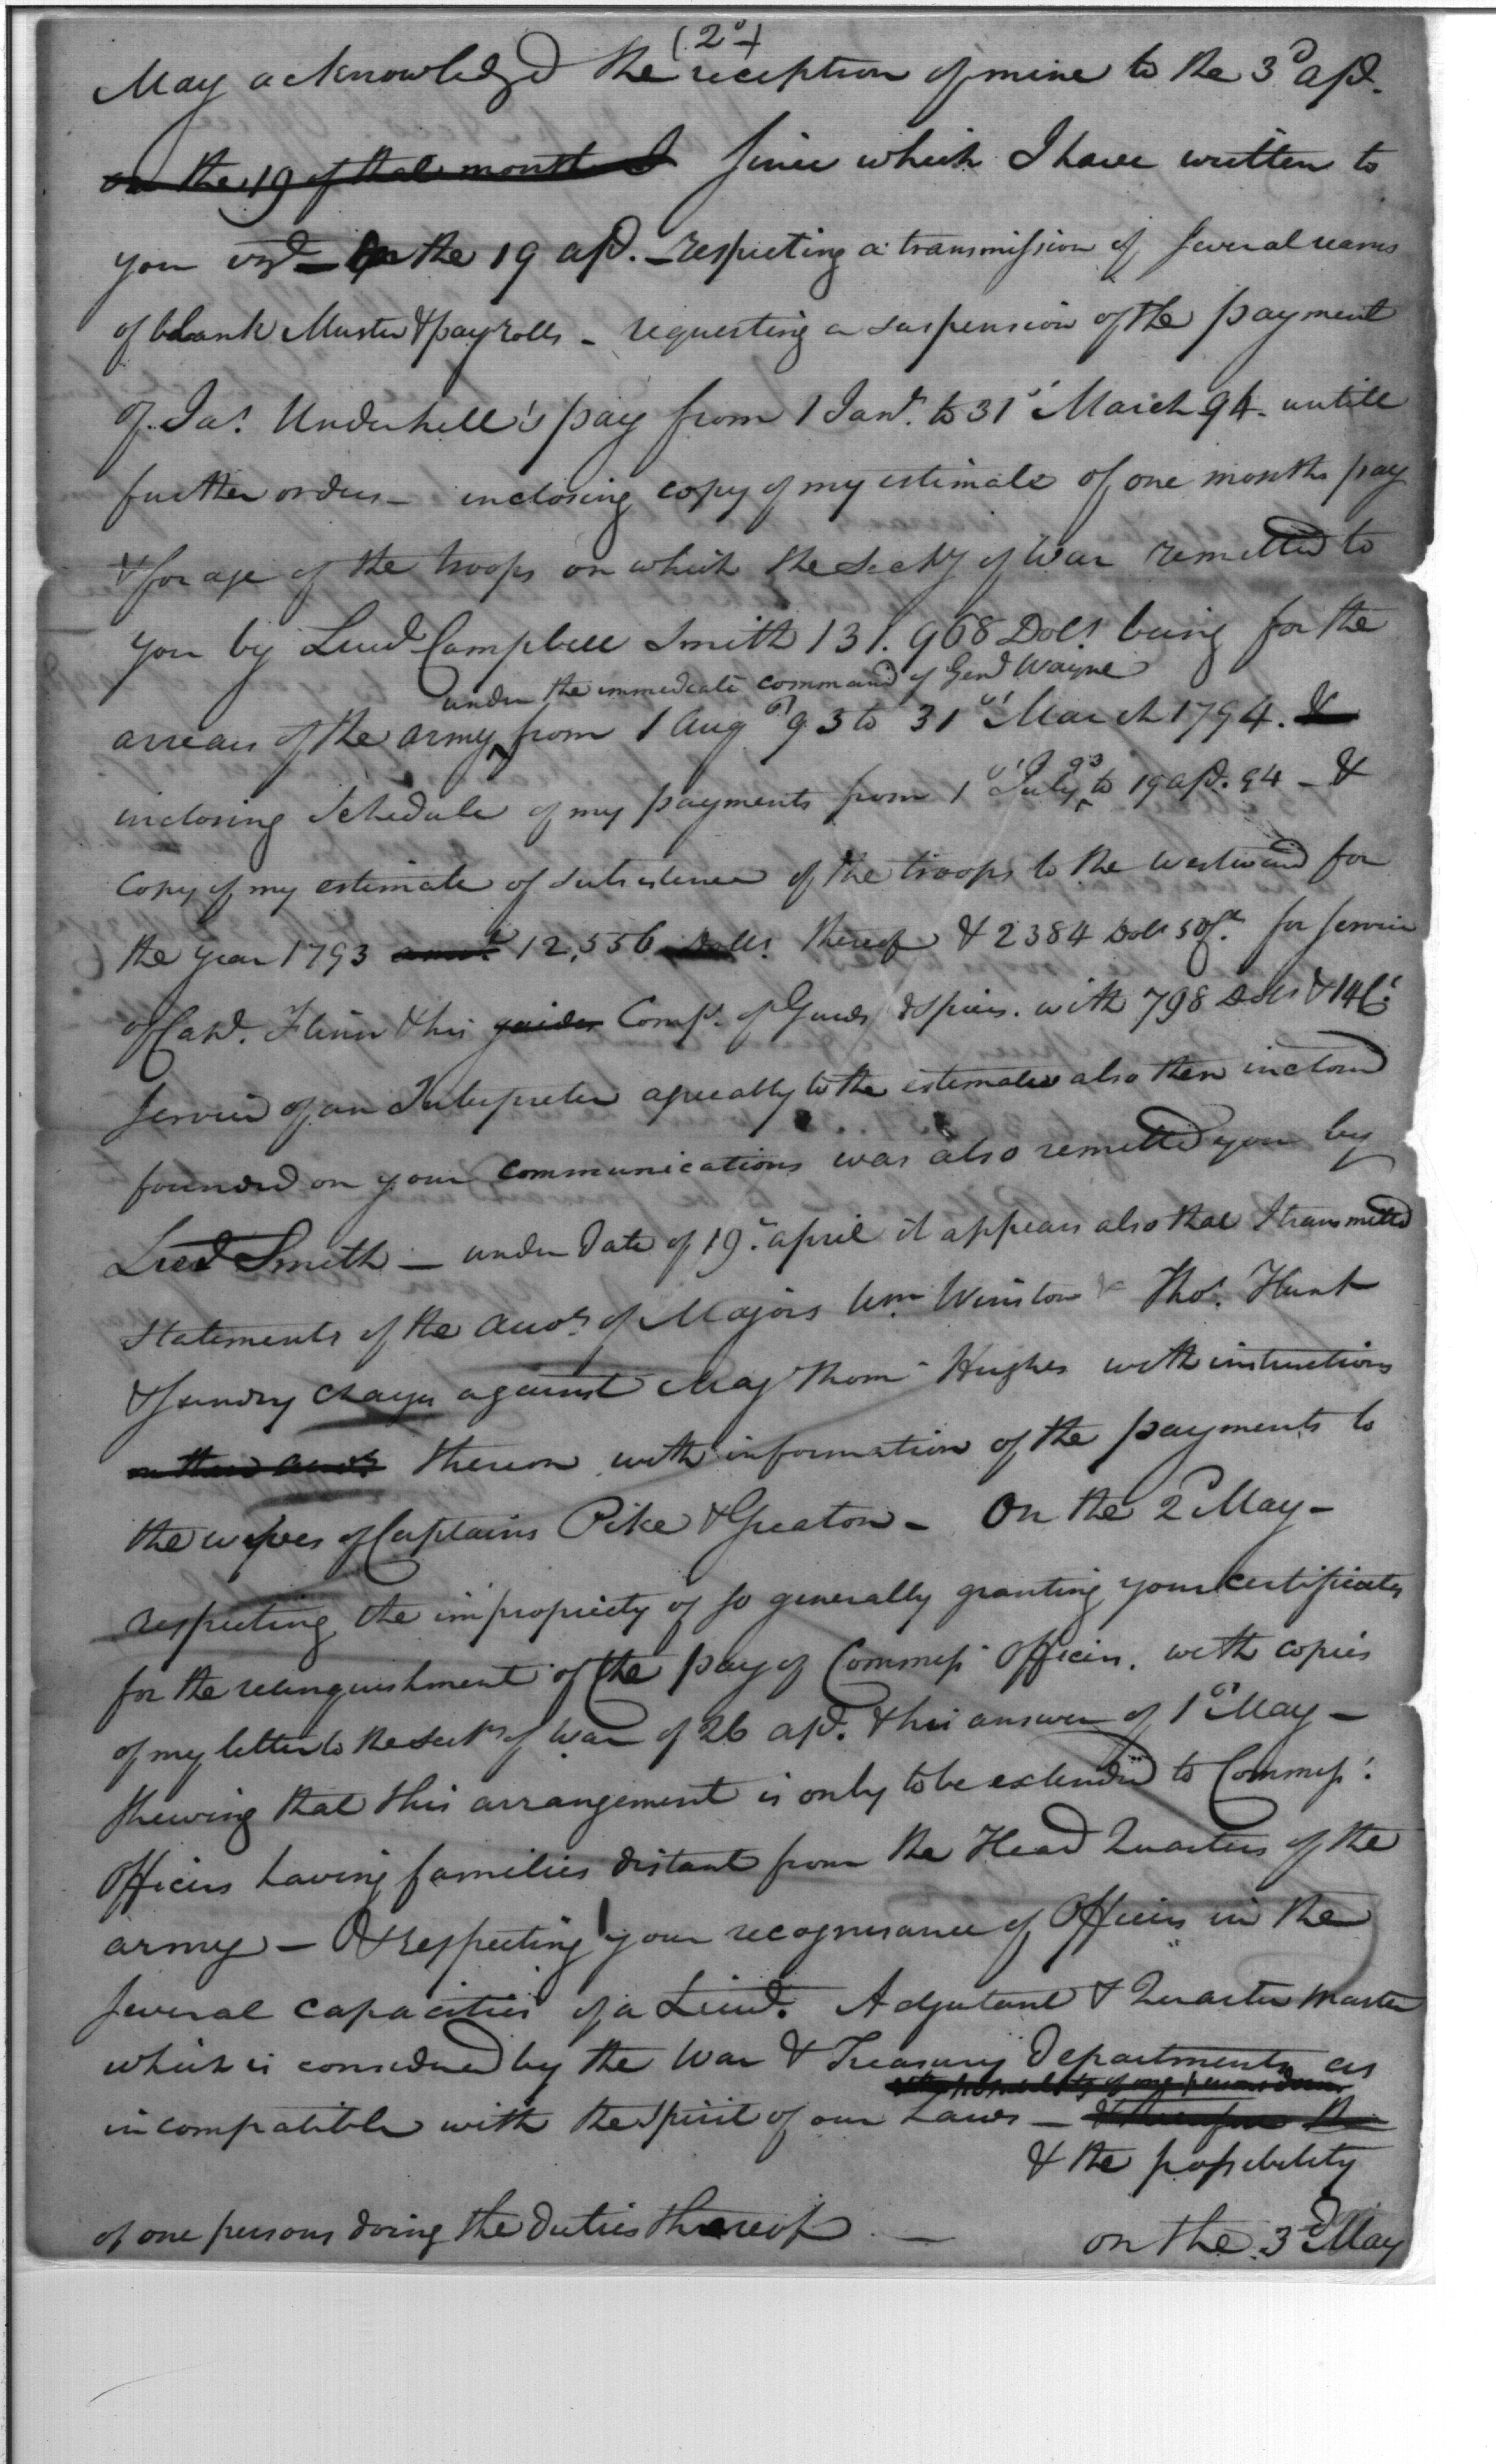 (2d)
May acknowledged the reception of mine to the 3d apl.
on the 19 of that month I since which I have written to
you vizt – On the 19 apl. – respecting a transmission of several reams
of blank Muster & pay rolls – requesting a suspension of the payment
of Jas. Underhill's pay from 1 Jany. to 31st March 94. untill
further orders – inclosing copy of my estimate of one months pay
& forage of the troops on which the Secty of War remitted to
you by Lieut Campbell Smith 131.968 Dols. being for the
under the immediate command of Genl Wayne
arrears of the army from 1 Aug st 93 to 31st March 1794. &
inclosing Schedule of my payments from 1st July 93 to 19 apl. 94 – &
Copy of my estimate of subsistence of the troops to the westward for
the year 1793 amot 12,556 Dolls. thereof & 2384 Dols 50/ for service
of Capt. Flinn & his guides Compy. of Guides & spies. with 798 Dols & 14 Cs.
service of an Interpreter agreeably to the estimates also then inclosed
founded on your communications was also remitted you by
Lieut Smith – under date of 19th april it appears also that I transmitted
statements of the accots of Majors Wm Winston & Thos. Hunt
& sundry charges against Maj Thom Hughes with instructions
on their accots thereon with information of the payments to
the wives of Captains Pike & Greaton – On the 2d May –
respecting the impropriety of so generally granting your certificates
for the relinquishment of the pay of Commissd Officers. with copies
of my letter to the Secty of War of 26 apl. & his answer of 1st May –
shewing that this arrangement is only to be extended to Commissd.
Officers having families distant from the Head Quarters of the
army – & respecting your recognisance of Officers in the
several capacities of a Lieut. Adjutant & Quarter Master
which is considered by the War & Treasury Departments as
incompatible with the spirit of our Laws – & therefore the
& the possibility
of one persons doing the duties thereof . — on the 3d May